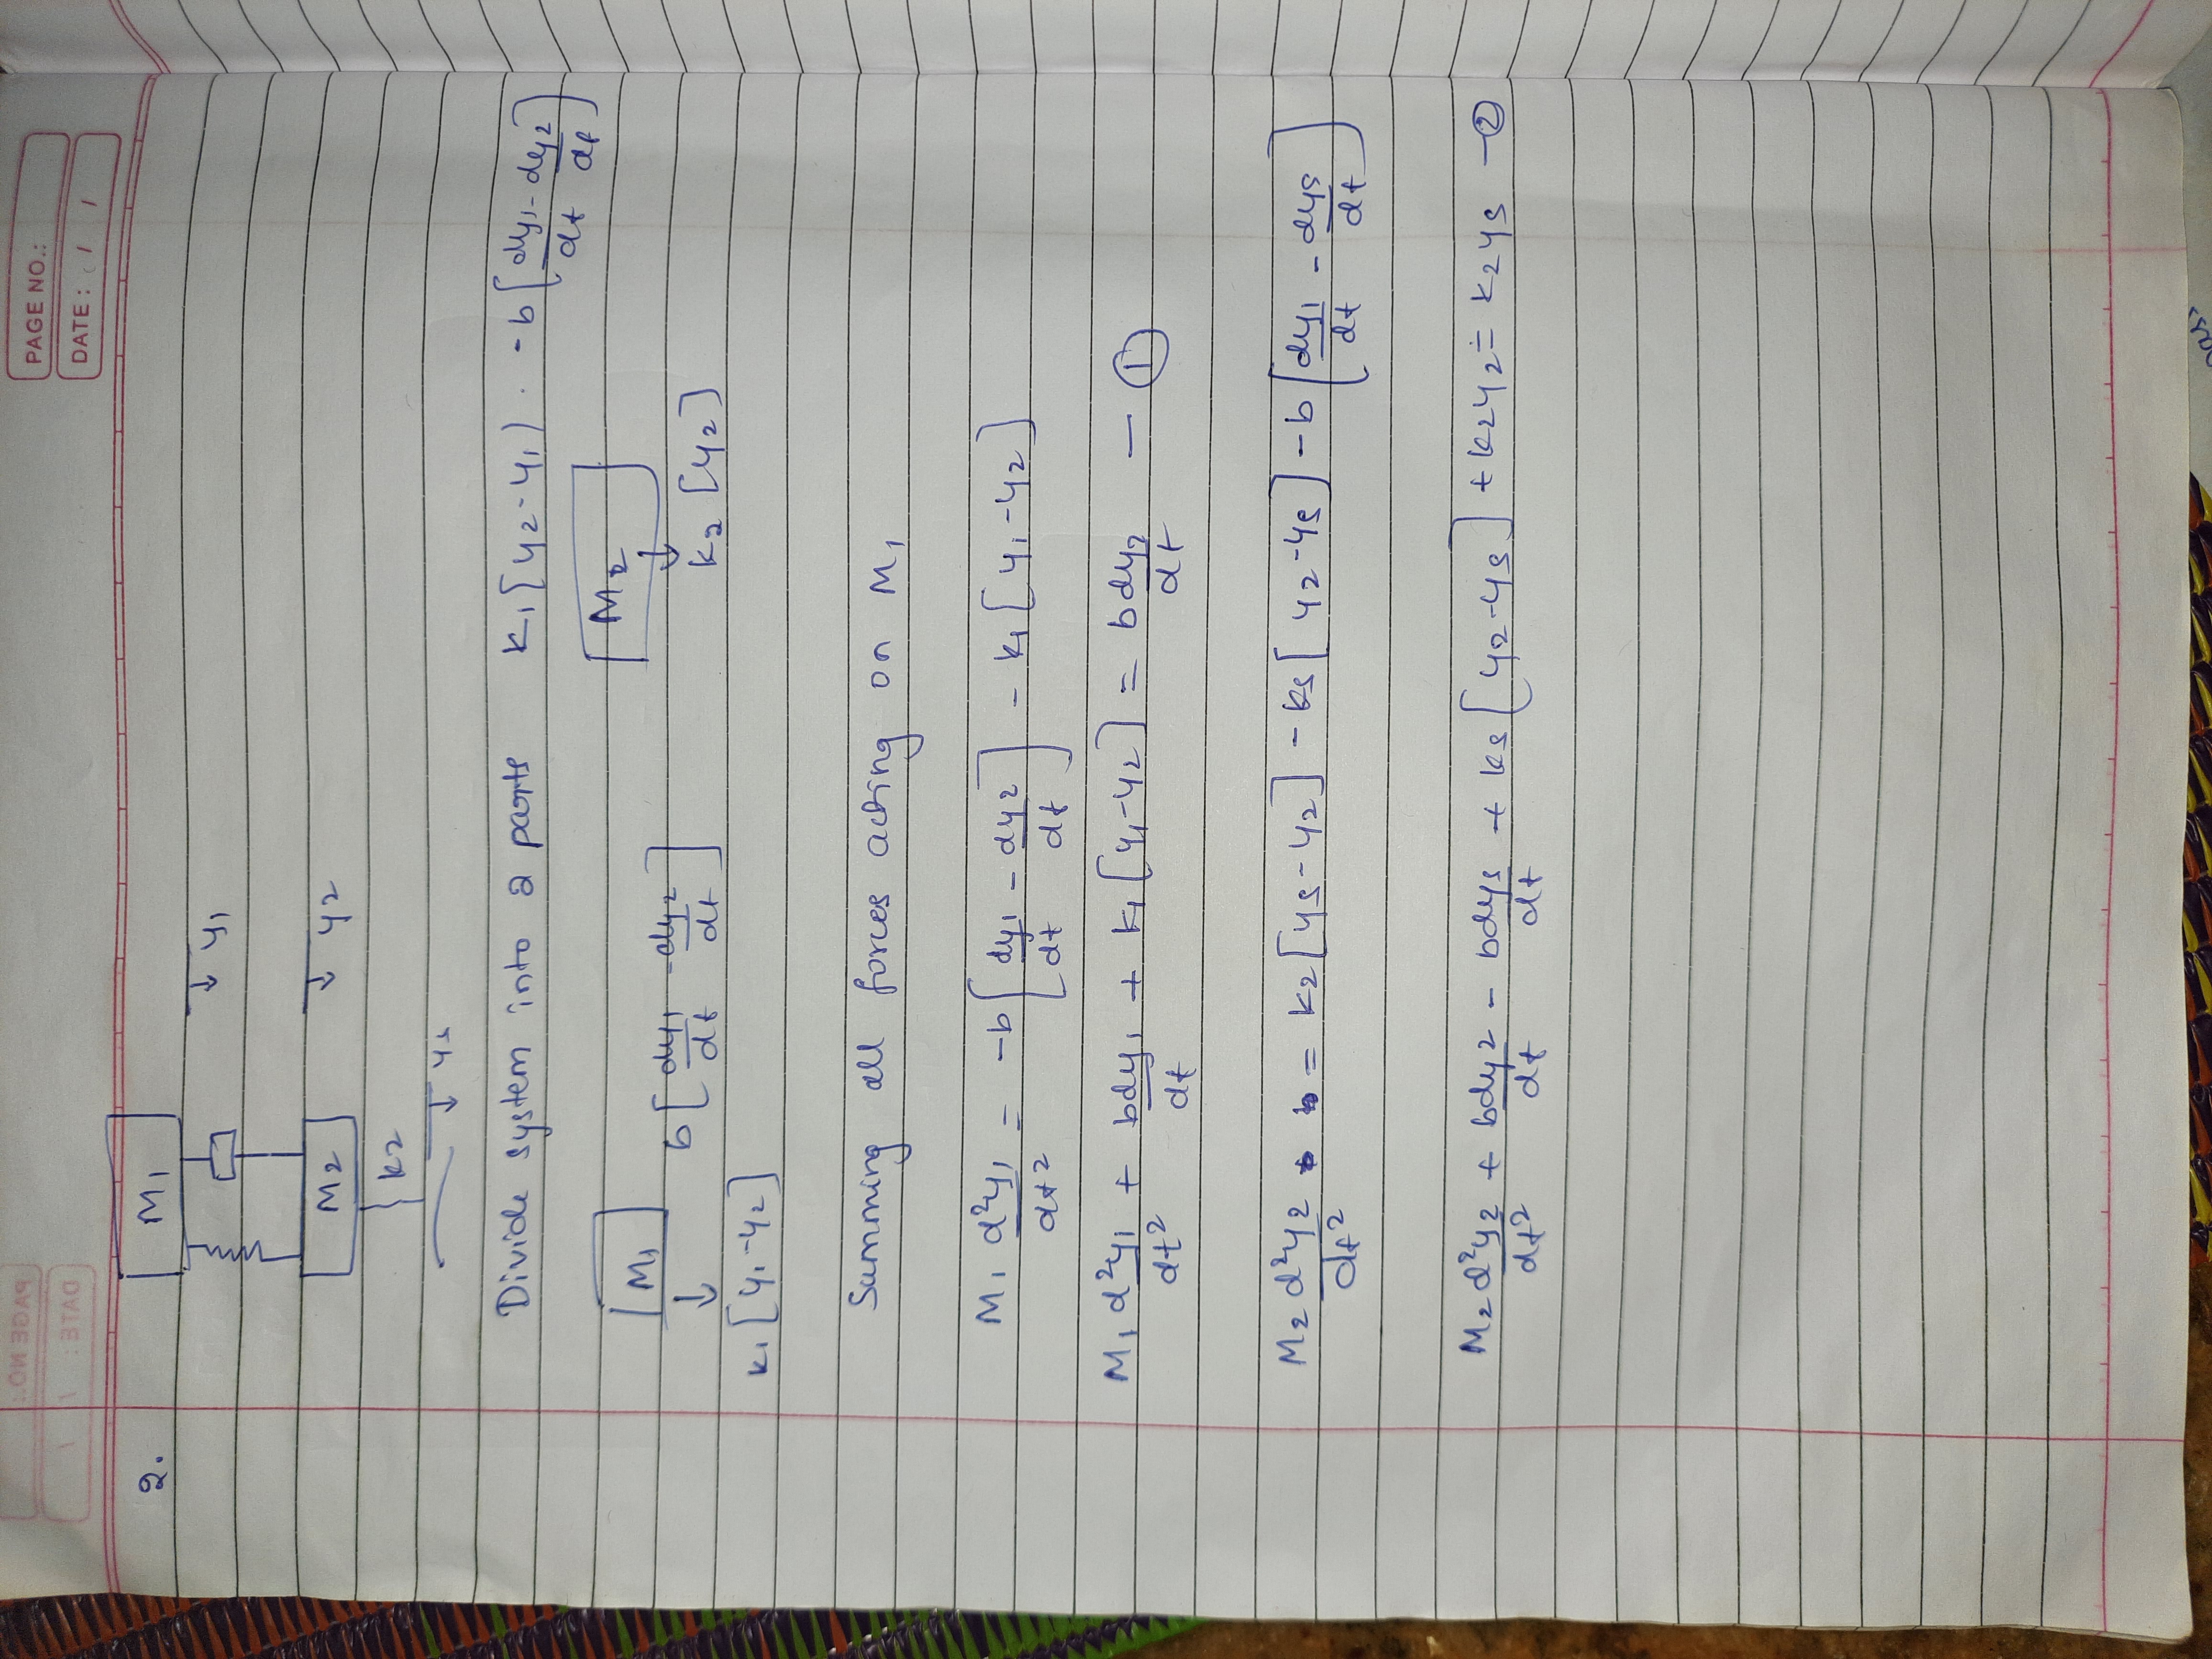 PAGE NO.:
DATE: / /
2.
M1
y1
M2
y2
k2
ys
Divide system into 2 parts k1[y2-y1) . -b[dy1/dt - dy2/dt]
M1 M2
b[dy1/dt - dy2/dt] k2[y2]
k1[y1-y2]
Summing all forces acting on M1
M1 d²y1/dt2 = -b[dy1/dt - dy2/dt] - k1[y1-y2]
M1 d²y1/dt2 + bdy1/dt + k1[y1-y2] = bdy2/dt - ①
M2 d²y2/dt2 = k2[ys-y2] - ks[y2-ys] - b[dy1/dt - dys/dt]
M2 d²y2/dt2 + bdy2/dt - bdys/dt + ks[y2-ys] + k2y2 = k2ys - ②